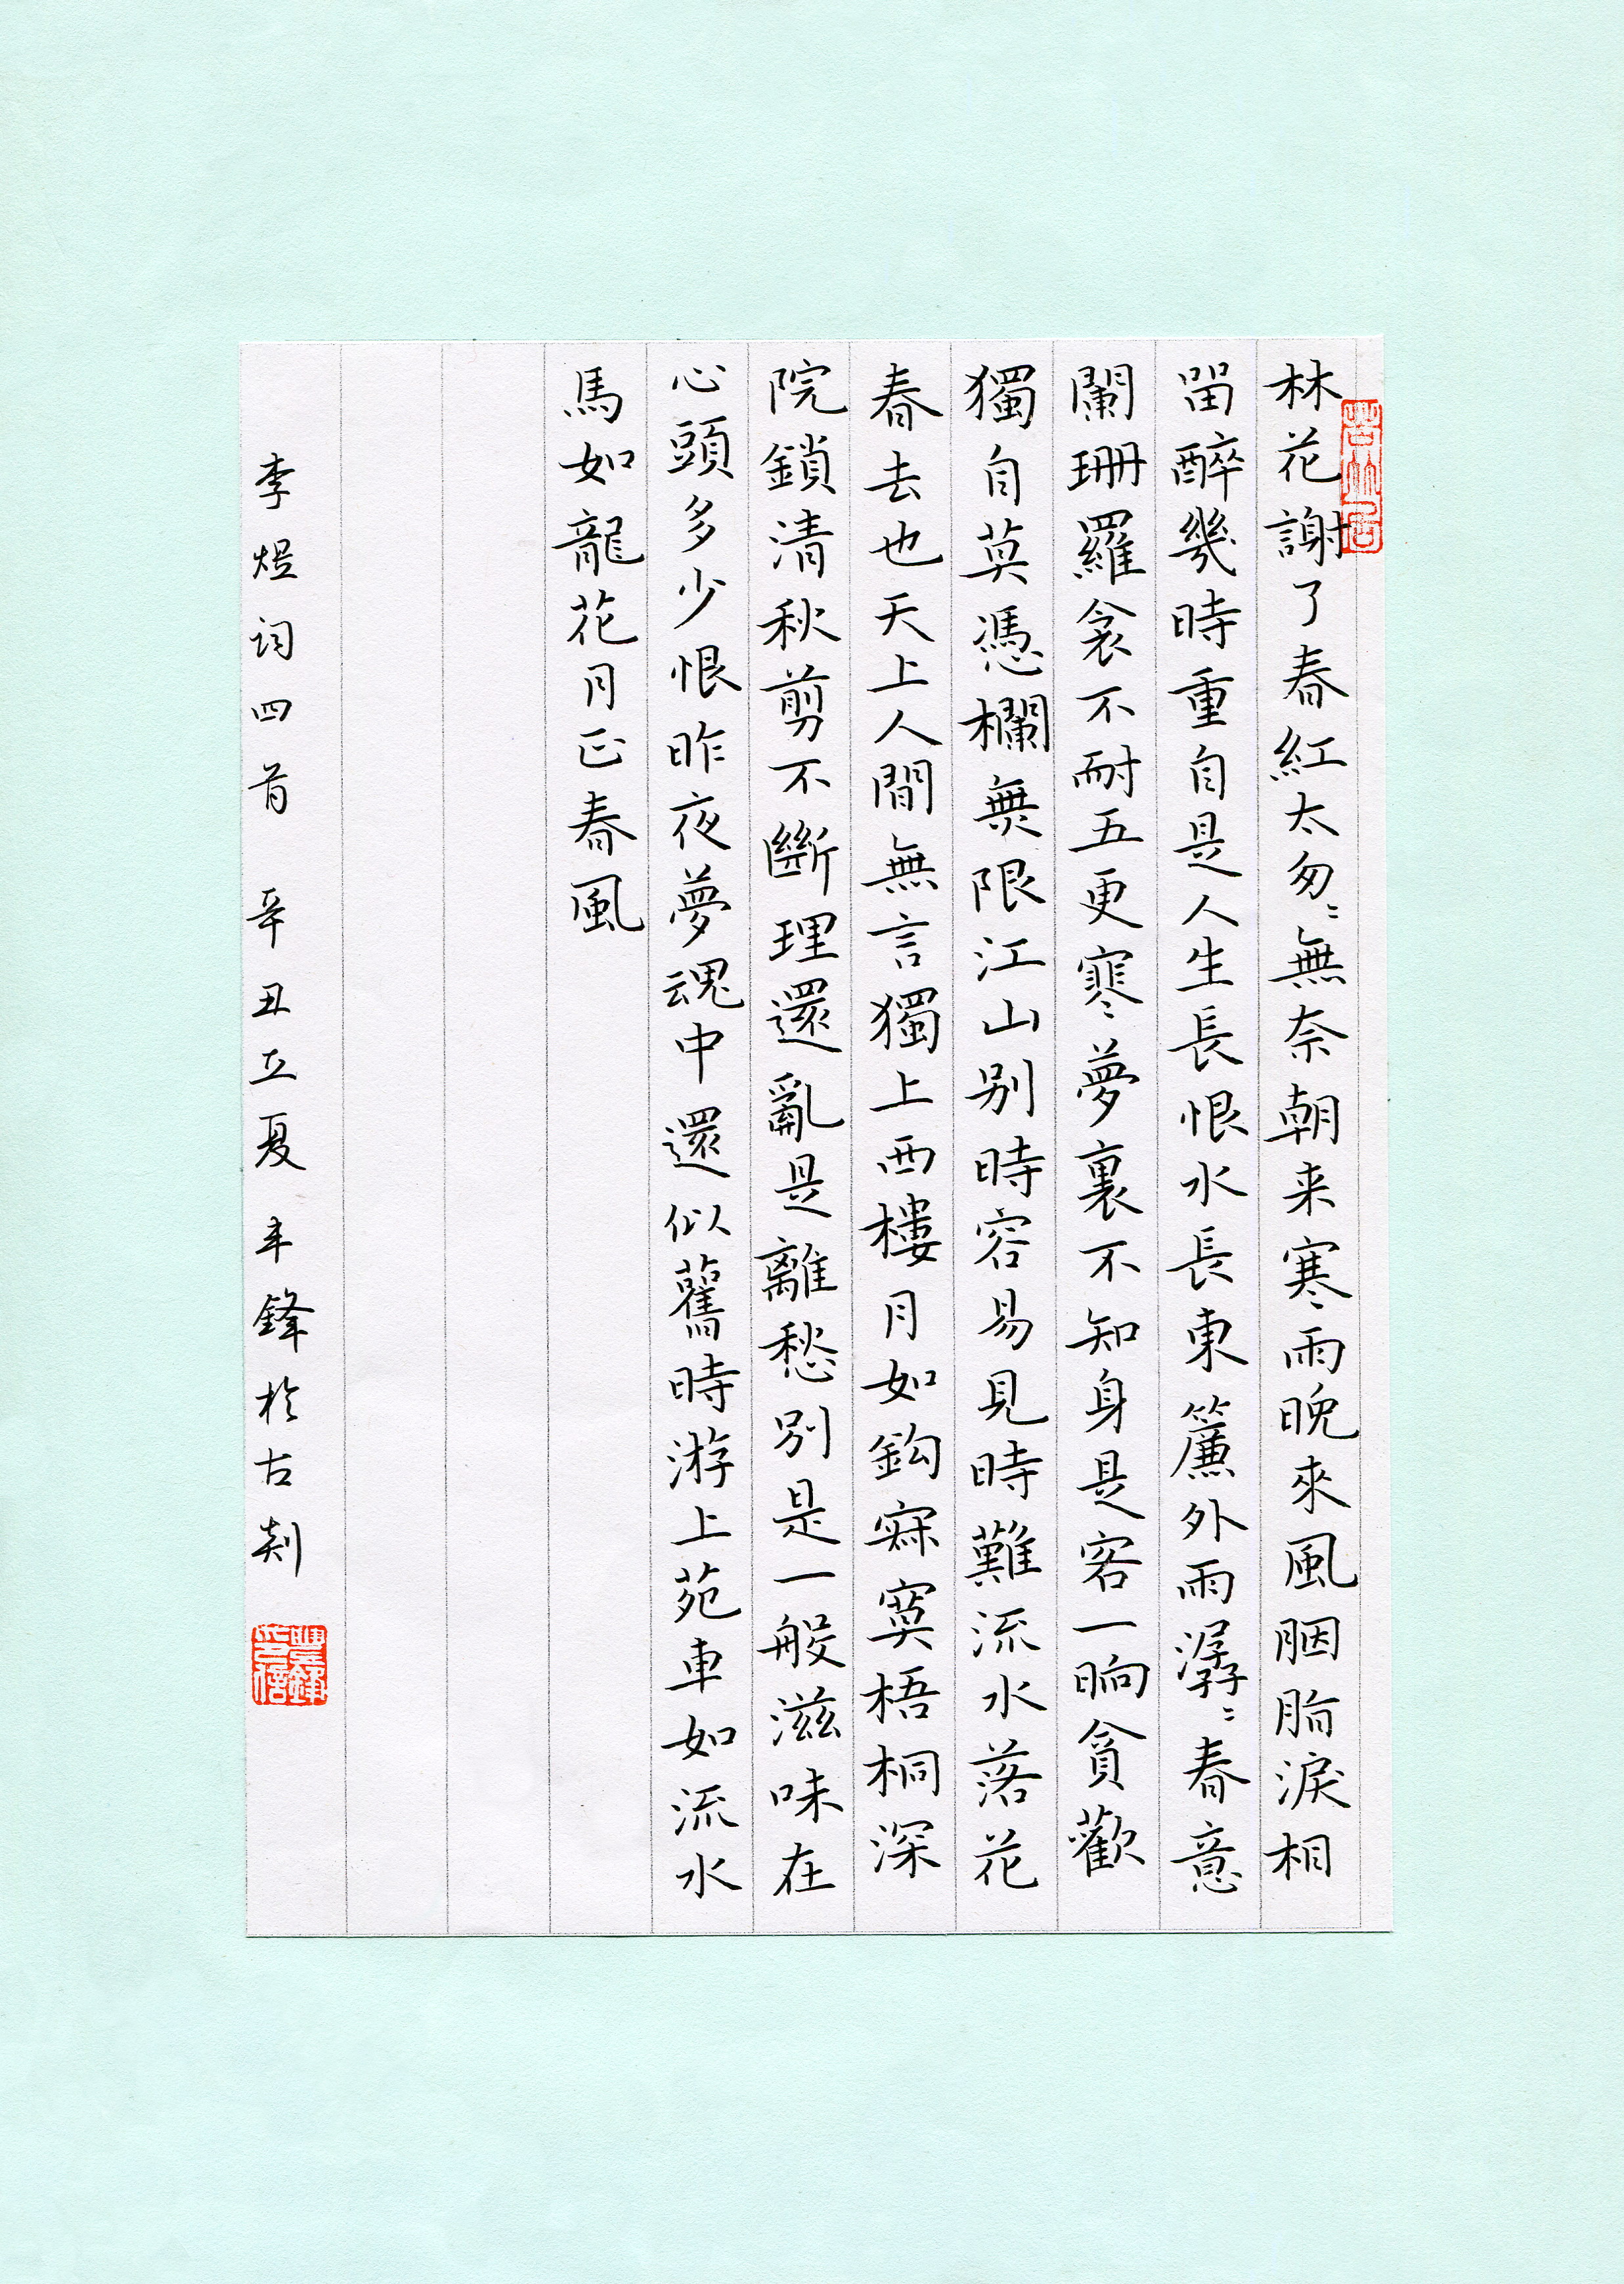 林花謝了春紅太匆〻無奈朝来寒雨晚來風胭脂淚相
留醉幾時重自是人生長恨水長東簾外雨潺〻春意
闌珊羅衾不耐五更寒夢裏不知身是客一晌貪歡
獨自莫憑欄無限江山别時容易見時難流水落花
春去也天上人間無言獨上西樓月如鈎寂寞梧桐深
院鎖清秋剪不斷理還亂是離愁别是一般滋味在
心頭多少恨昨夜夢魂中還似舊時游上苑車如流水
馬如龍花月正春風
李煜词四首 辛丑立夏丰鋒於古剡